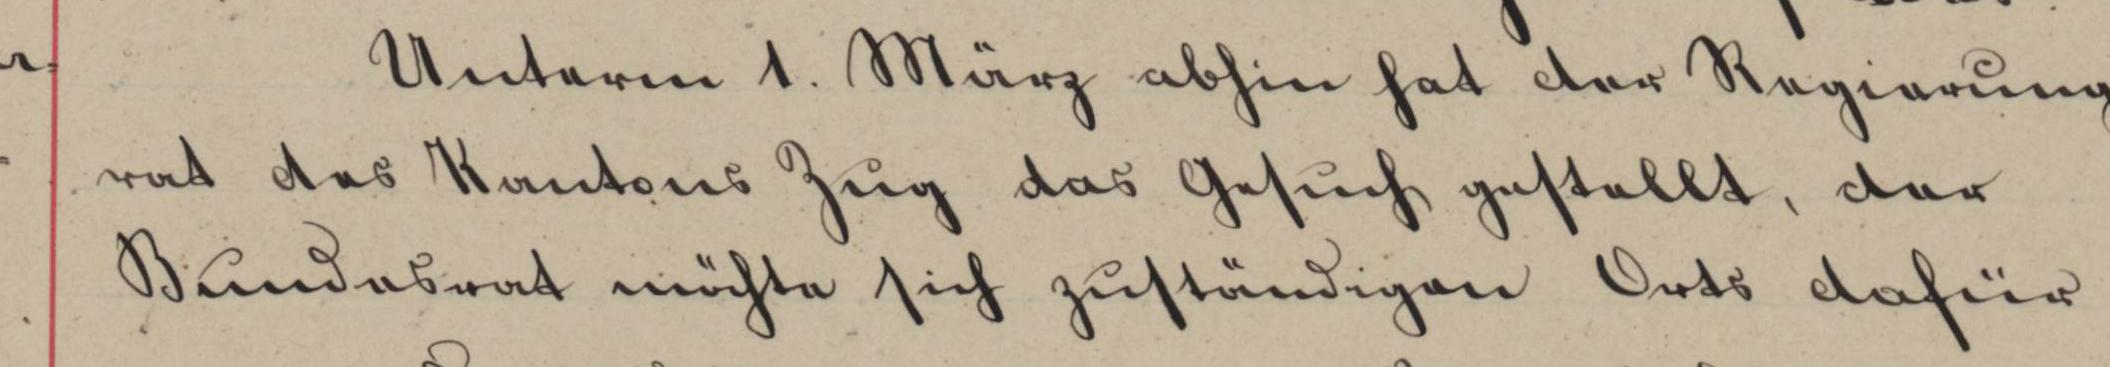 Unterm 1. März abhin hat der Regierung
rat des Kantons Zug das Gesuch gestellt, der
Bundesrat möchte sich zuständigen Orts dafür